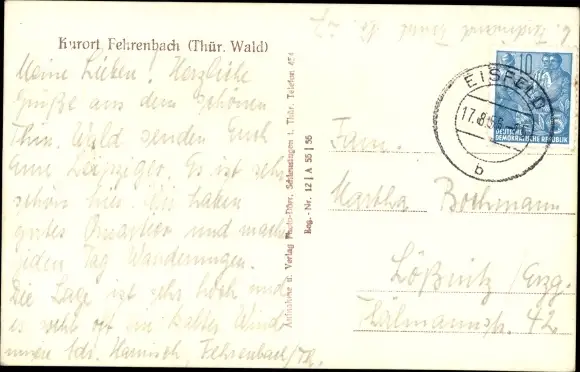 Kurort Fehrenbach (Thür. Wald)
Meine Lieben! Herzliche
Grüße aus dem schönen
Thür. Wald senden Euch
Eure Leipziger. Es ist sehr
schön hier. Wir haben
gutes Quartier und machen
jeden Tag Wanderungen.
Die Lage ist sehr hoch und
es weht oft ein kalter Wind
unsere Adr. Harnisch, Fehrenbach/Th.
Aufnahme u. Verlag Photo-Dörr, Schleusingen i. Thür. Telefon 454
Reg.-Nr. 12 | A 55 | 56
10
DEUTSCHE
DEMOKRATISCHE REPUBLIK
EISFELD
17.8.56
b
Fam.
Martha Bochmann
Lößnitz/Erzg.
Thälmannstr. 42